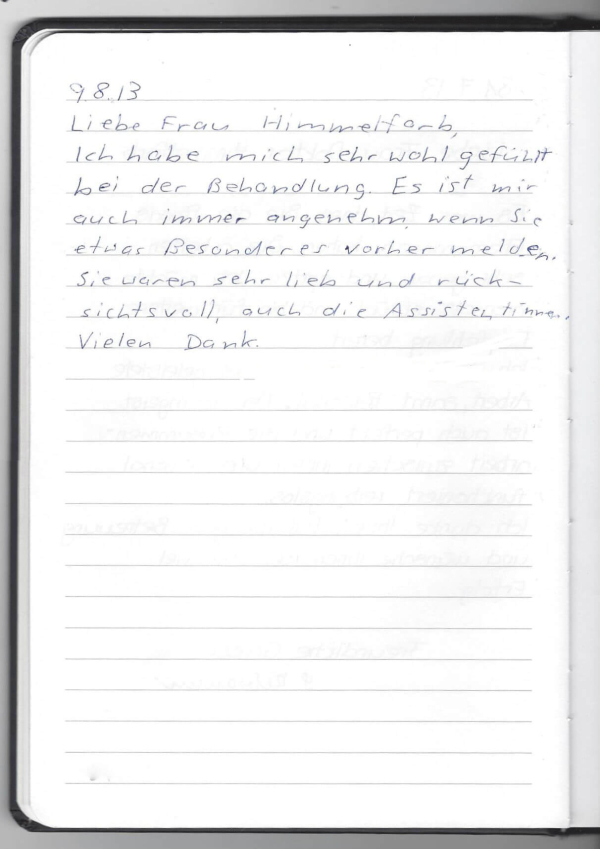 9.8.13
Liebe Frau Himmelfarb,
Ich habe mich sehr wohl gefühlt
bei der Behandlung. Es ist mir
auch immer angenehm, wenn Sie
etwas Besonderes vorher melden.
Sie waren sehr lieb und rück-
sichtsvoll, auch die Assistentinnen.
Vielen Dank.